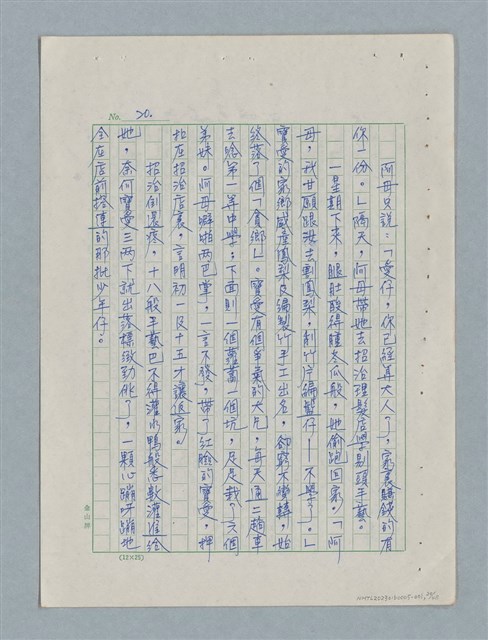 No. 20.
阿母只說：「愛仔，你已經算大人了，家裏賺錢的有
你一份。」隔天，阿母帶她去招治理髮店學剃頭手藝。
一星期下來，眼肚酸得腫冬瓜般，她偷跑回家。「阿
母，我甘願跟妳去割鳳梨，削竹片編籃仔——不學了。」
寶愛的家鄉盛產鳳梨及編製竹手工出名，卻窮不變轉，始
終落了個「貧鄉」。寶愛有個爭氣的大兄，每天通二趟車
去唸第一等中學；下面則一個蘿蔔一個坑，足足栽了六個
弟妹。阿母噼啪兩巴掌，一言不發，帶了紅臉的寶愛，押
在招治店裏。言明初一及十五才讓返家。
招治倒還疼，十八般手藝巴不得灌水鴨般悉數灌准給
她，奈何寶愛三兩下就出落標緻勁俏了，一顆心蹦呀蹦地
全在店前搭連的那批少年仔。
金山牌
(12×25)